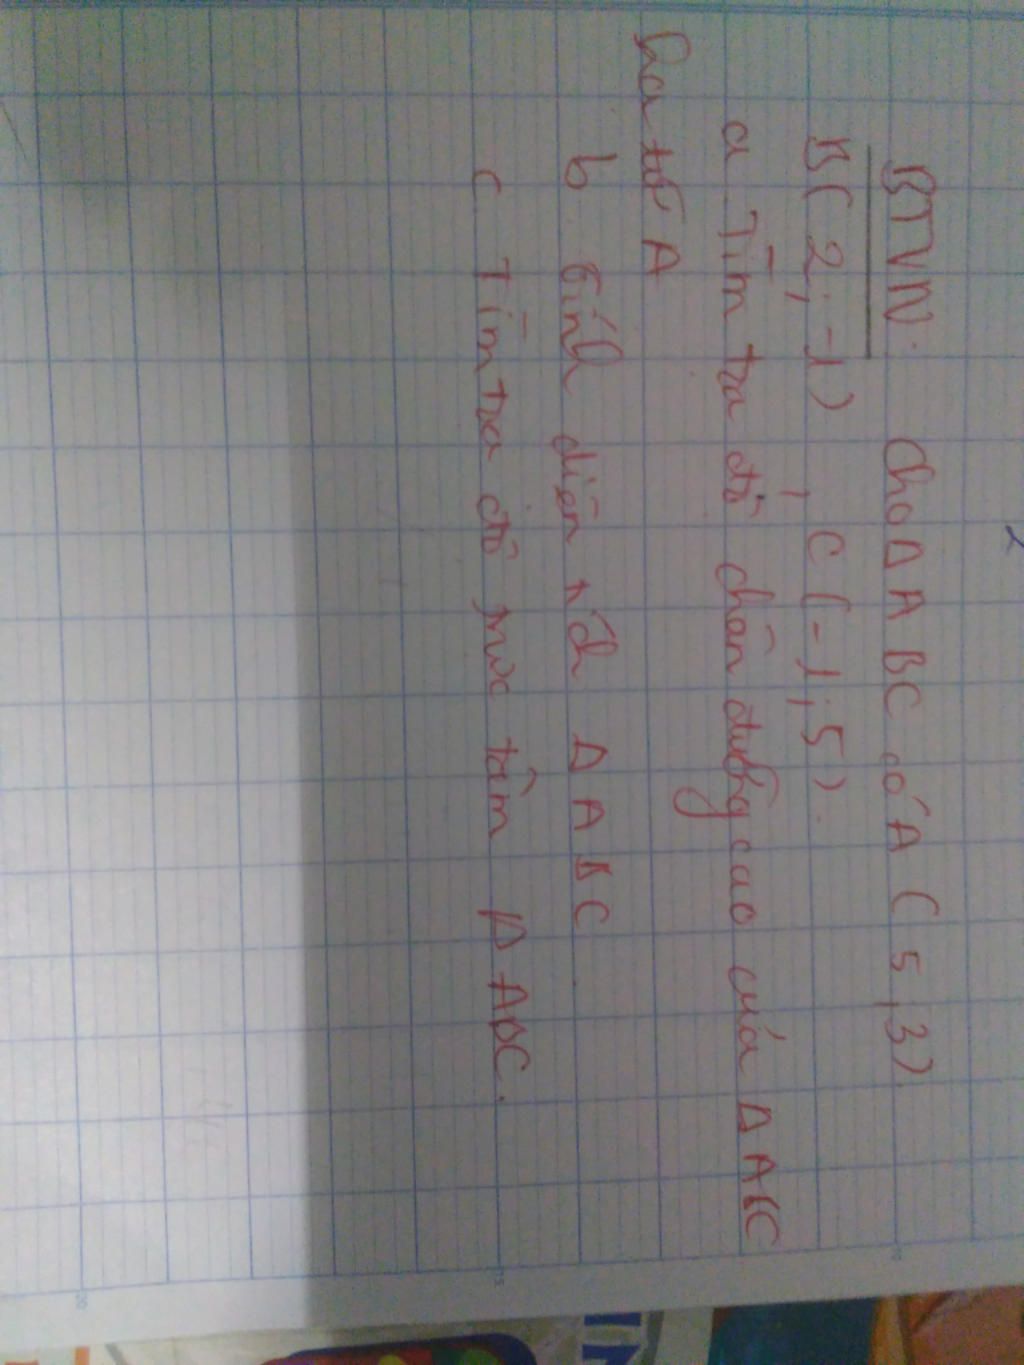 BTVN: Cho Δ ABC có A (5, 3).
B(2; -1), C (-1; 5).
a. Tìm toạ độ chân đường cao của Δ ABC
hạ từ A
b. Tính diện tích Δ ABC
c Tìm toạ độ trực tâm Δ ABC.